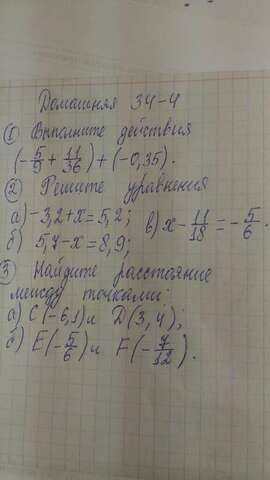 Домашняя 34-4
① Выполните действия
(-5/9 + 11/36) + (-0,35).
② Решите уравнения
а) -3,2+x=5,2; в) x - 11/18 = - 5/6.
б) 5,7-x=8,9;
③ Найдите расстояние
между точками:
а) C(-6,1) и D(3,4);
б) E(-5/6) и F(-7/12).